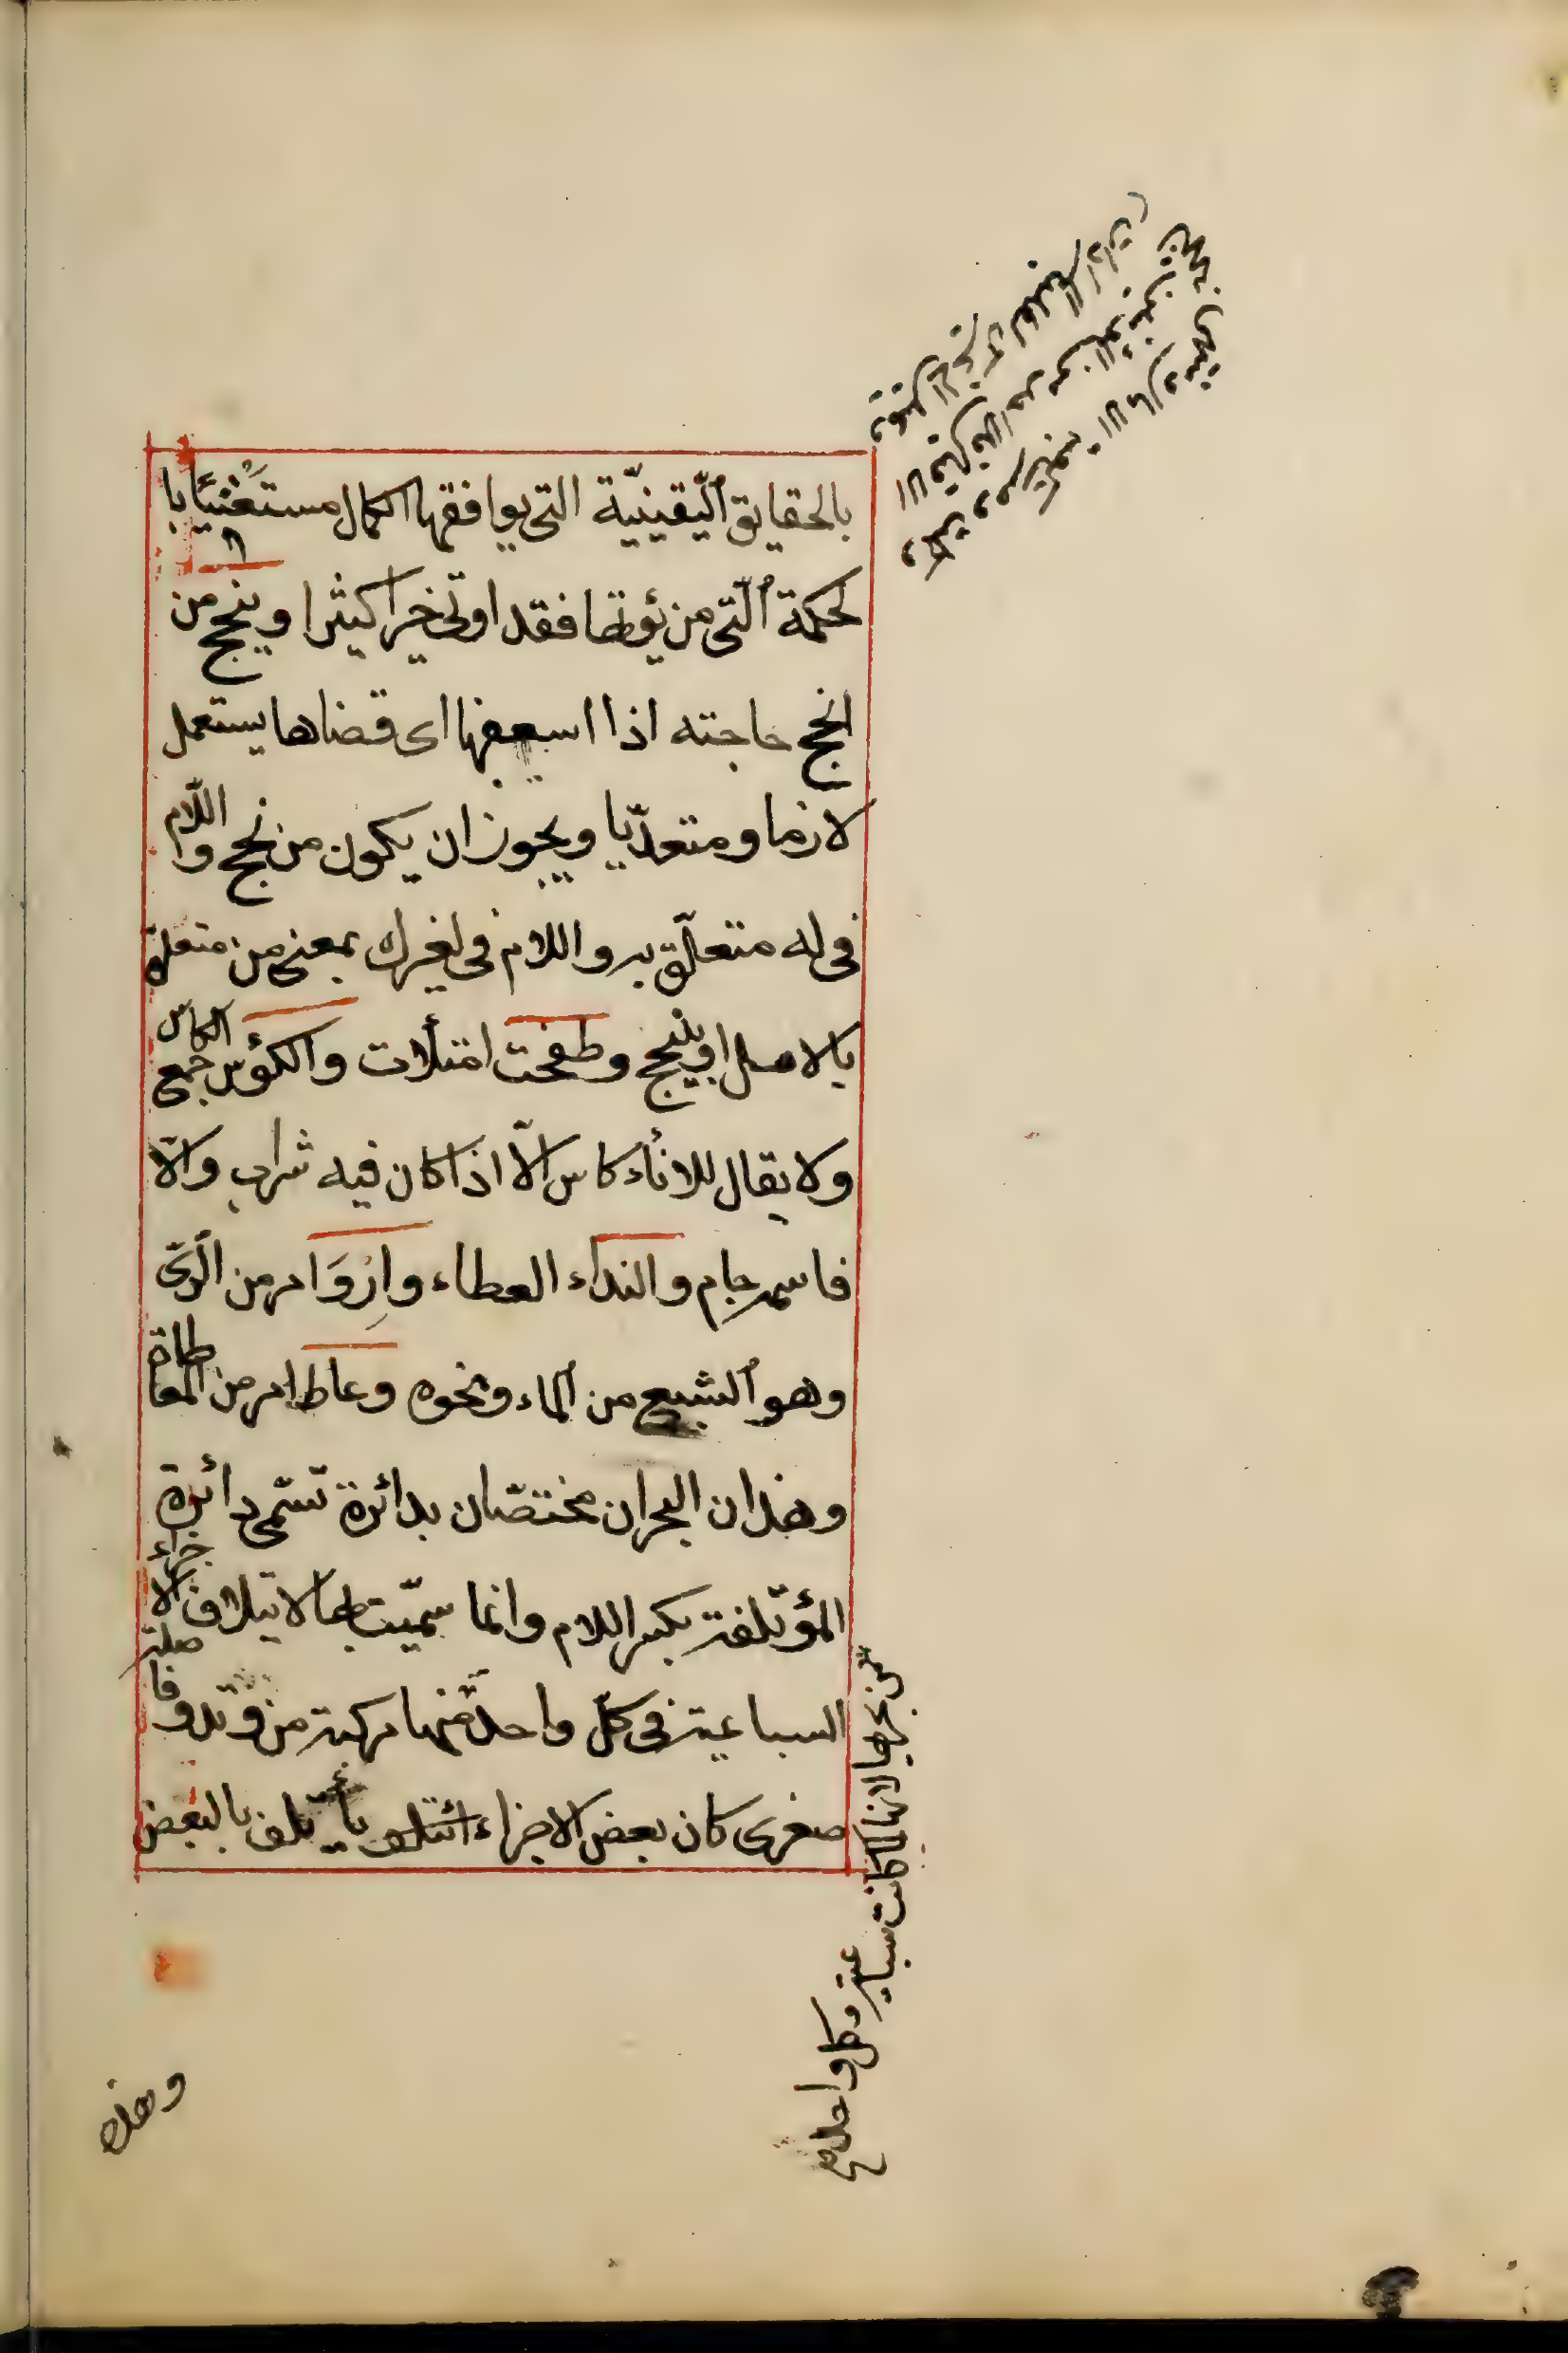 بالحقايق اليّقينيّة التى يوافقها الكمال مستغنيًا با
لحكمة الّتى من يؤتها فقد اوتى خيرا كثيرا وينجح من
انجح حاجته اذا اسعفها اى قضاها يستعمل
لازما ومتعدّيا ويجوز ان يكون من نجح واللّام
فى له متعلّق به واللام فى لغيرك بمعنى من متعلق
بالامل او ينجح وطفحت امتلأت والكؤس جمع الكاس
ولا يقال للاناء كاس الّا اذا كان فيه شراب والّا
فاسمه جام والنداء العطاء وارْوَ امر من الرّى
وهو الشبع من الماء ونحوه وعاط امر من المعاطاة
وهذان البحران مختصّان بدائرة تسمّى دائرة
المؤتلفة بكسر اللام وانما سمّيت بها لايتلاف الاجزاء
السباعية فى كلّ واحد منها مركبة من وتد وفاصلة
صغرى كان بعض الاجزاء ائتلف يأتلف بالبعض
من بحرها لانها لما كانت سباعية وكل واحد
وهذه